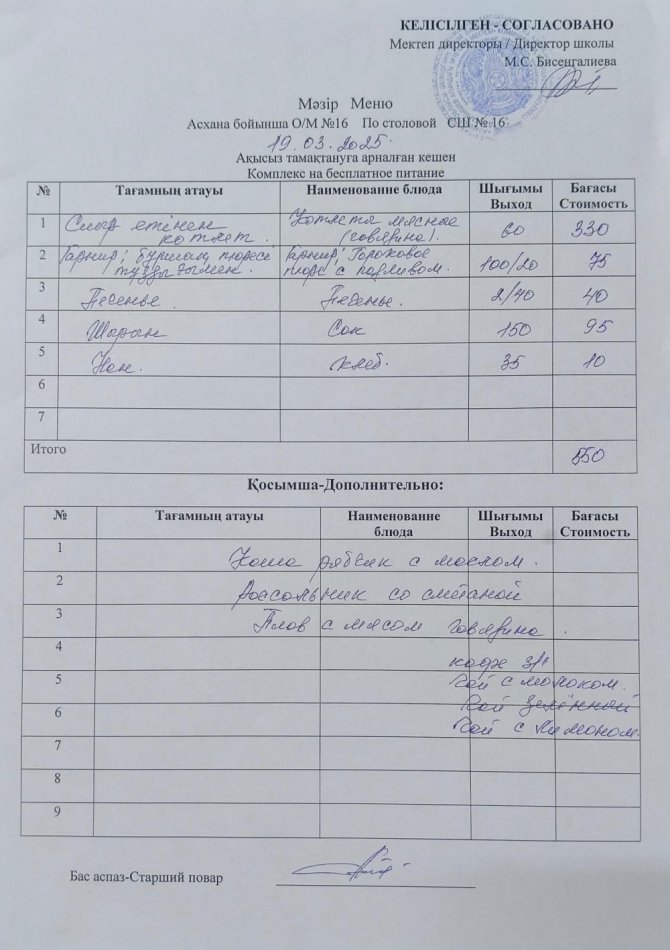 КЕЛІСІЛГЕН - СОГЛАСОВАНО
Мектеп директоры / Директор школы
М.С. Бисенгалиева
Мәзір Меню
Асхана бойынша О/М №16 По столовой СШ № 16
19.03.2025
Ақысыз тамақтануға арналған кешен
Комплекс на бесплатное питание
№ Тағамның атауы Наименование блюда Шығымы Выход Бағасы Стоимость
1 Сиыр етінен котлет. Котлета мясная (говядина). 60 330
2 Гарнир; бұршақ пюресі тұздығымен. Гарнир; Гороховое пюре с подливом. 100/20 75
3 Печенье. Печенье. 2/40 40
4 Шырын Сок 150 95
5 Нан. хлеб. 35 10
6
7
Итого 550
Қосымша-Дополнительно:
№ Тағамның атауы Наименование блюда Шығымы Выход Бағасы Стоимость
1 Каша рябчик с маслом.
2 Рассольник со сметаной
3 Плов с мясом говядина.
4 кофе 3/1
5 Чай с молоком.
Чай зелённый
6 Чай с лимоном.
7
8
9
Бас аспаз-Старший повар